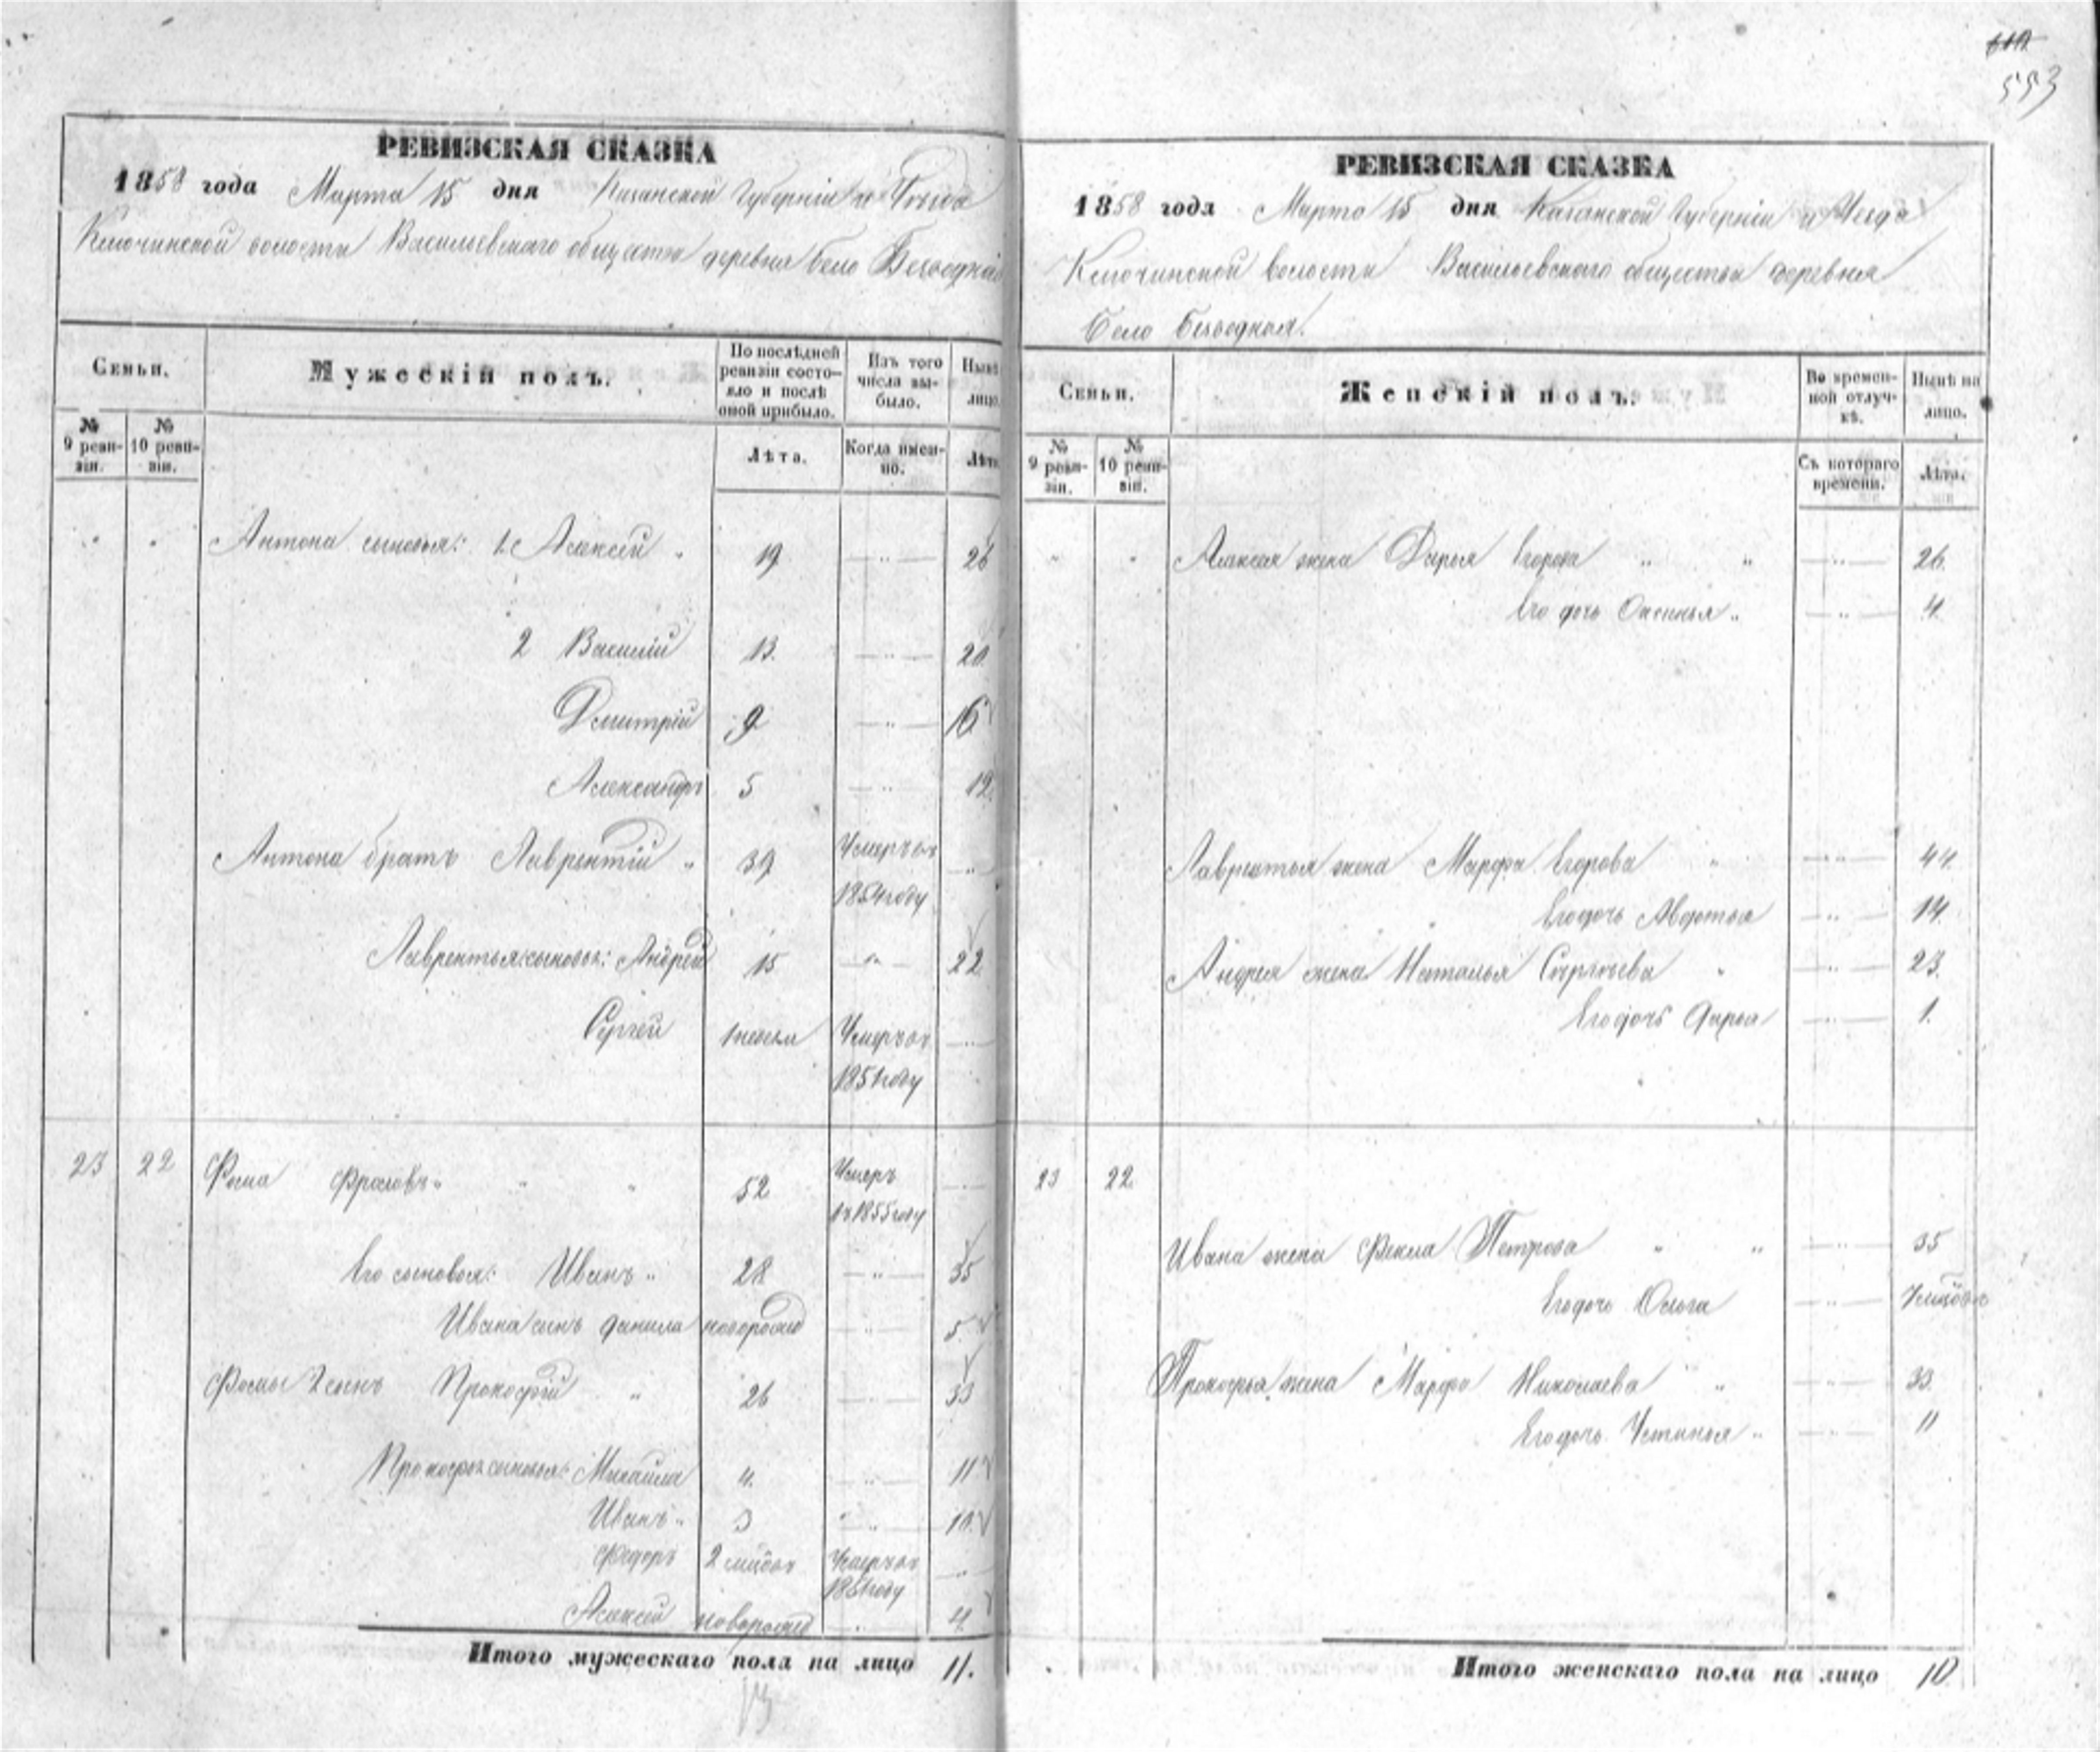 553
РЕВИЗСКАЯ СКАЗКА
1858 года Марта 15 дня Казанской Губерніи и Уѣзда
Ключинской волости Васильевскаго общества деревня Село Безводная
Семьи.
Мужескій полъ.
По послѣдней ревизіи состояло и послѣ оной прибыло.
Изъ того числа выбыло.
Нынѣ лицо.
№ 9 ревизіи.
№ 10 ревизіи.
Лѣта.
Когда именно.
Лѣта
Антона сыновья: 1. Алексей 19 26
2 Василій 13. 20.
Дмитрій 9 16
Александръ 5 12.
Антона братъ Лаврентій 39 Умеръ въ 1854 году
Лаврентья сыновья: Андрей 15 22
Сергей 1 Умеръ въ 1851 году
23 22 Фома Фроловъ 52 Умеръ въ 1855 году
Его сыновья: Иванъ 28 35
Ивана сынъ Данила новорожд 5.
Фомы 2 сынъ Прокофій 26 33
Прокофья сыновья: Михаила 4. 11
Иванъ 3 10.
Федоръ 2 Умеръ въ 1851 году
Алексей новорожд 4
Итого мужескаго пола на лицо 11.
13
РЕВИЗСКАЯ СКАЗКА
1858 года Марта 15 дня Казанской Губерніи и Уезда
Ключинской волости Васильевскаго общества деревня
Село Безводная.
Семьи.
Женскій полъ.
Во временной отлучкѣ.
Нынѣ на лицо.
№ 9 ревизіи.
№ 10 ревизіи.
Съ котораго времени.
Лѣта.
Алексея жена Дарья Егорова 26.
Его дочь Оксинья 4.
Лаврентья жена Марфа Егорова 44.
Его дочь Авдотья 14.
Андрея жена Наталья Сергеева 23.
Его дочь Дарья 1.
23 22.
Ивана жена Фекла Петрова 35
Его дочь Ольга
Прокофья жена Марфа Николаева 33.
Его дочь Устинья 11
Итого женскаго пола на лицо 10.